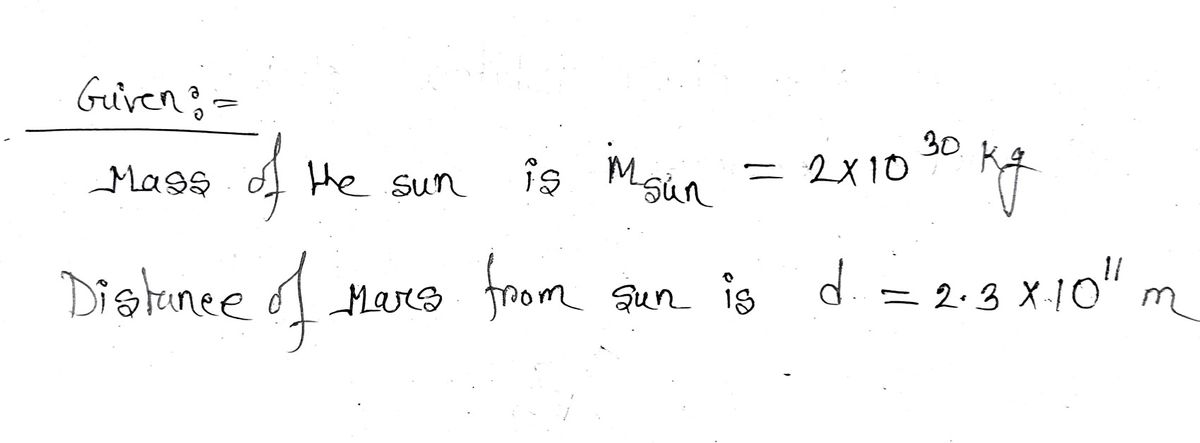 Given:=
Mass of the sun is Msun = 2×10^30 kg
Distance of Mars from sun is d = 2.3 × 10^11 m